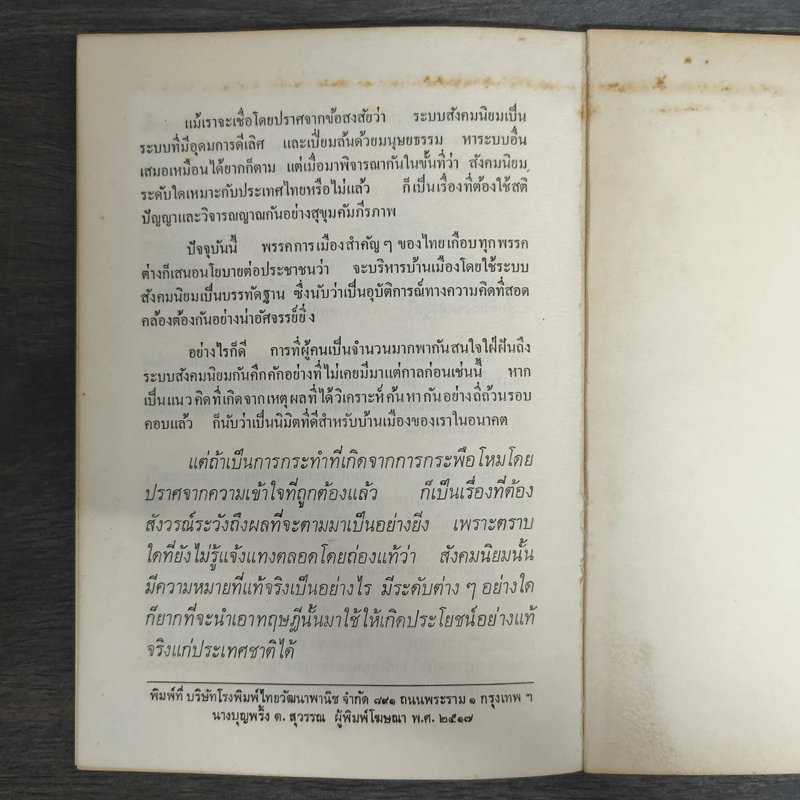 แม้เราจะเชื่อโดยปราศจากข้อสงสัยว่า ระบบสังคมนิยมเป็น
ระบบที่มีอุดมการดีเลิศ และเปี่ยมล้นด้วยมนุษยธรรม หาระบบอื่น
เสมอเหมือนได้ยากก็ตาม แต่เมื่อมาพิจารณากันในขั้นที่ว่า สังคมนิยม
ระดับใดเหมาะกับประเทศไทยหรือไม่แล้ว ก็เป็นเรื่องที่ต้องใช้สติ
ปัญญาและวิจารณญาณกันอย่างสุขุมคัมภีรภาพ
ปัจจุบันนี้ พรรคการเมืองสำคัญ ๆ ของไทยเกือบทุกพรรค
ต่างก็เสนอนโยบายต่อประชาชนว่า จะบริหารบ้านเมืองโดยใช้ระบบ
สังคมนิยมเป็นบรรทัดฐาน ซึ่งนับว่าเป็นอุบัติการณ์ทางความคิดที่สอด
คล้องต้องกันอย่างน่าอัศจรรย์ยิ่ง
อย่างไรก็ดี การที่ผู้คนเป็นจำนวนมากพากันสนใจใฝ่ฝันถึง
ระบบสังคมนิยมกันคึกคักอย่างที่ไม่เคยมีมาแต่กาลก่อนเช่นนี้ หาก
เป็นแนวคิดที่เกิดจากเหตุผลที่ได้วิเคราะห์ค้นหากันอย่างถี่ถ้วนรอบ
คอบแล้ว ก็นับว่าเป็นนิมิตที่ดีสำหรับบ้านเมืองของเราในอนาคต
แต่ถ้าเป็นการกระทำที่เกิดจากการกระพือโหมโดย
ปราศจากความเข้าใจที่ถูกต้องแล้ว ก็เป็นเรื่องที่ต้อง
สังวรณ์ระวังถึงผลที่จะตามมาเป็นอย่างยิ่ง เพราะตราบ
ใดที่ยังไม่รู้แจ้งแทงตลอดโดยถ่องแท้ว่า สังคมนิยมนั้น
มีความหมายที่แท้จริงเป็นอย่างไร มีระดับต่าง ๆ อย่างใด
ก็ยากที่จะนำเอาทฤษฎีนั้นมาใช้ให้เกิดประโยชน์อย่างแท้
จริงแก่ประเทศชาติได้
พิมพ์ที่ บริษัทโรงพิมพ์ไทยวัฒนาพานิช จำกัด ๘๙๑ ถนนพระราม ๑ กรุงเทพ ฯ
นางบุญพริ้ง ต. สุวรรณ ผู้พิมพ์โฆษณา พ.ศ. ๒๕๑๗